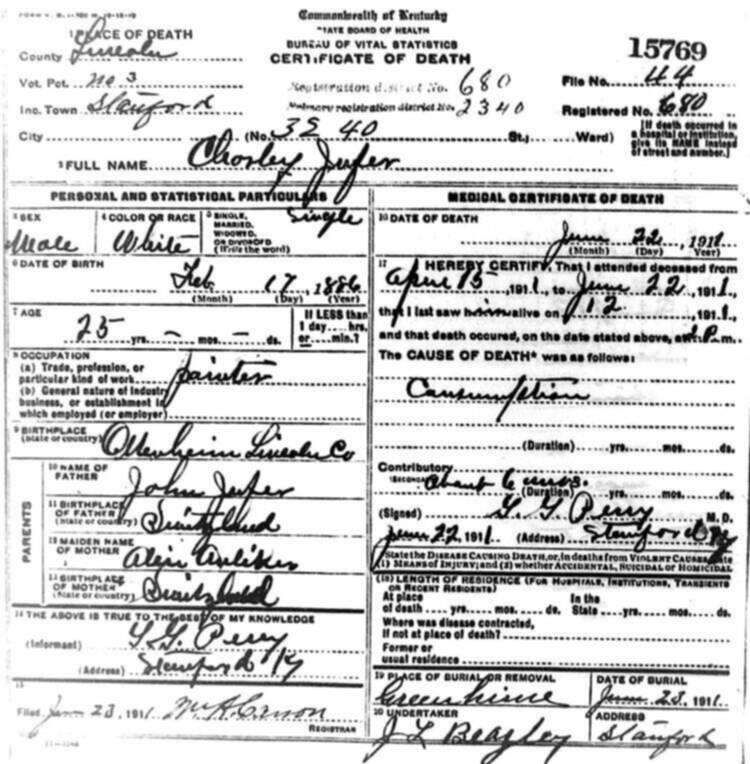 Commonwealth of Kentucky
STATE BOARD OF HEALTH
BUREAU OF VITAL STATISTICS
CERTIFICATE OF DEATH
15769
1 PLACE OF DEATH
County Lincoln
Vot. Pct. No 3
Inc. Town Stanford
City (No. 3240 St., Ward)
Registration district No. 680
Primary registration district No. 2340
File No. 44
Registered No. 680
[If death occurred in a hospital or institution, give its NAME instead of street and number.]
2 FULL NAME Chorley
PERSONAL AND STATISTICAL PARTICULARS
3 SEX Male
4 COLOR OR RACE White
5 SINGLE, MARRIED, WIDOWED, OR DIVORCED (Write the word) Single
6 DATE OF BIRTH Feb 17, 1886
(Month) (Day) (Year)
7 AGE 25 yrs. – mos. – ds.
If LESS than 1 day ... hrs. or ... min.?
8 OCCUPATION
(a) Trade, profession, or particular kind of work painter
(b) General nature of industry business, or establishment in which employed (or employer)
9 BIRTHPLACE (State or country) Ottenheim Lincoln Co
PARENTS
10 NAME OF FATHER John
11 BIRTHPLACE OF FATHER (State or country)
12 MAIDEN NAME OF MOTHER
13 BIRTHPLACE OF MOTHER (State or country)
14 THE ABOVE IS TRUE TO THE BEST OF MY KNOWLEDGE
(Informant) Perry
(Address) Stanford Ky
15
Filed June 23, 1911
REGISTRAR
MEDICAL CERTIFICATE OF DEATH
16 DATE OF DEATH
June 22, 1911
(Month) (Day) (Year)
17 I HEREBY CERTIFY, That I attended deceased from
April 15 1911, to June 22 1911,
that I last saw him alive on 12 1911,
and that death occurred, on the date stated above, at P.m.
The CAUSE OF DEATH* was as follows:
Consumption
(Duration) yrs. mos. ds.
Contributory
(SECONDARY) About 6 mos.
(Duration) yrs. mos. ds.
(Signed) Perry M. D.
June 22, 1911 (Address) Stanford Ky
*State the DISEASE CAUSING DEATH, or, in deaths from VIOLENT CAUSES, state
(1) MEANS OF INJURY; and (2) whether ACCIDENTAL, SUICIDAL or HOMICIDAL
(18) LENGTH OF RESIDENCE (FOR HOSPITALS, INSTITUTIONS, TRANSIENTS
OR RECENT RESIDENTS)
At place of death yrs. mos. ds. In the State yrs. mos. ds.
Where was disease contracted,
If not at place of death?
Former or
usual residence
19 PLACE OF BURIAL OR REMOVAL
DATE OF BURIAL
June 23, 1911
20 UNDERTAKER
J L Beazley
ADDRESS
Stanford